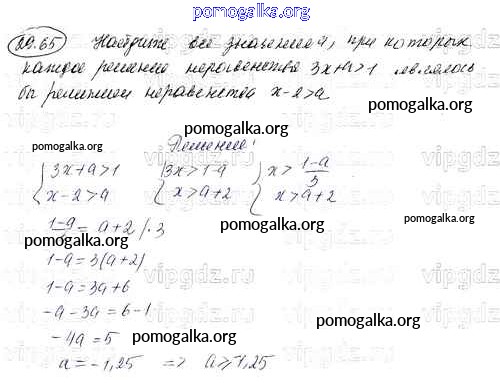 pomogalka.org
20.65 Найдите все значения a, при которых
каждое решение неравенства 3x+a>1 являлось
бы решением неравенства x-2>a
pomogalka.org
pomogalka.org
Решение:
pomogalka.org pomogalka.org
{3x+a>1 {3x>1-a {x> (1-a)/3
{x-2>a {x>a+2 {x>a+2
pomogalka.org
pomogalka.org
(1-a)/3 = a+2 /·3
pomogalka.org
vipgdz.ru
1-a = 3(a+2)
1-a = 3a+6
pomogalka.org
-a-3a = 6-1
pomogalka.org
-4a = 5
pomogalka.org
a = -1,25 => a ⩾ -1,25
pomogalka.org